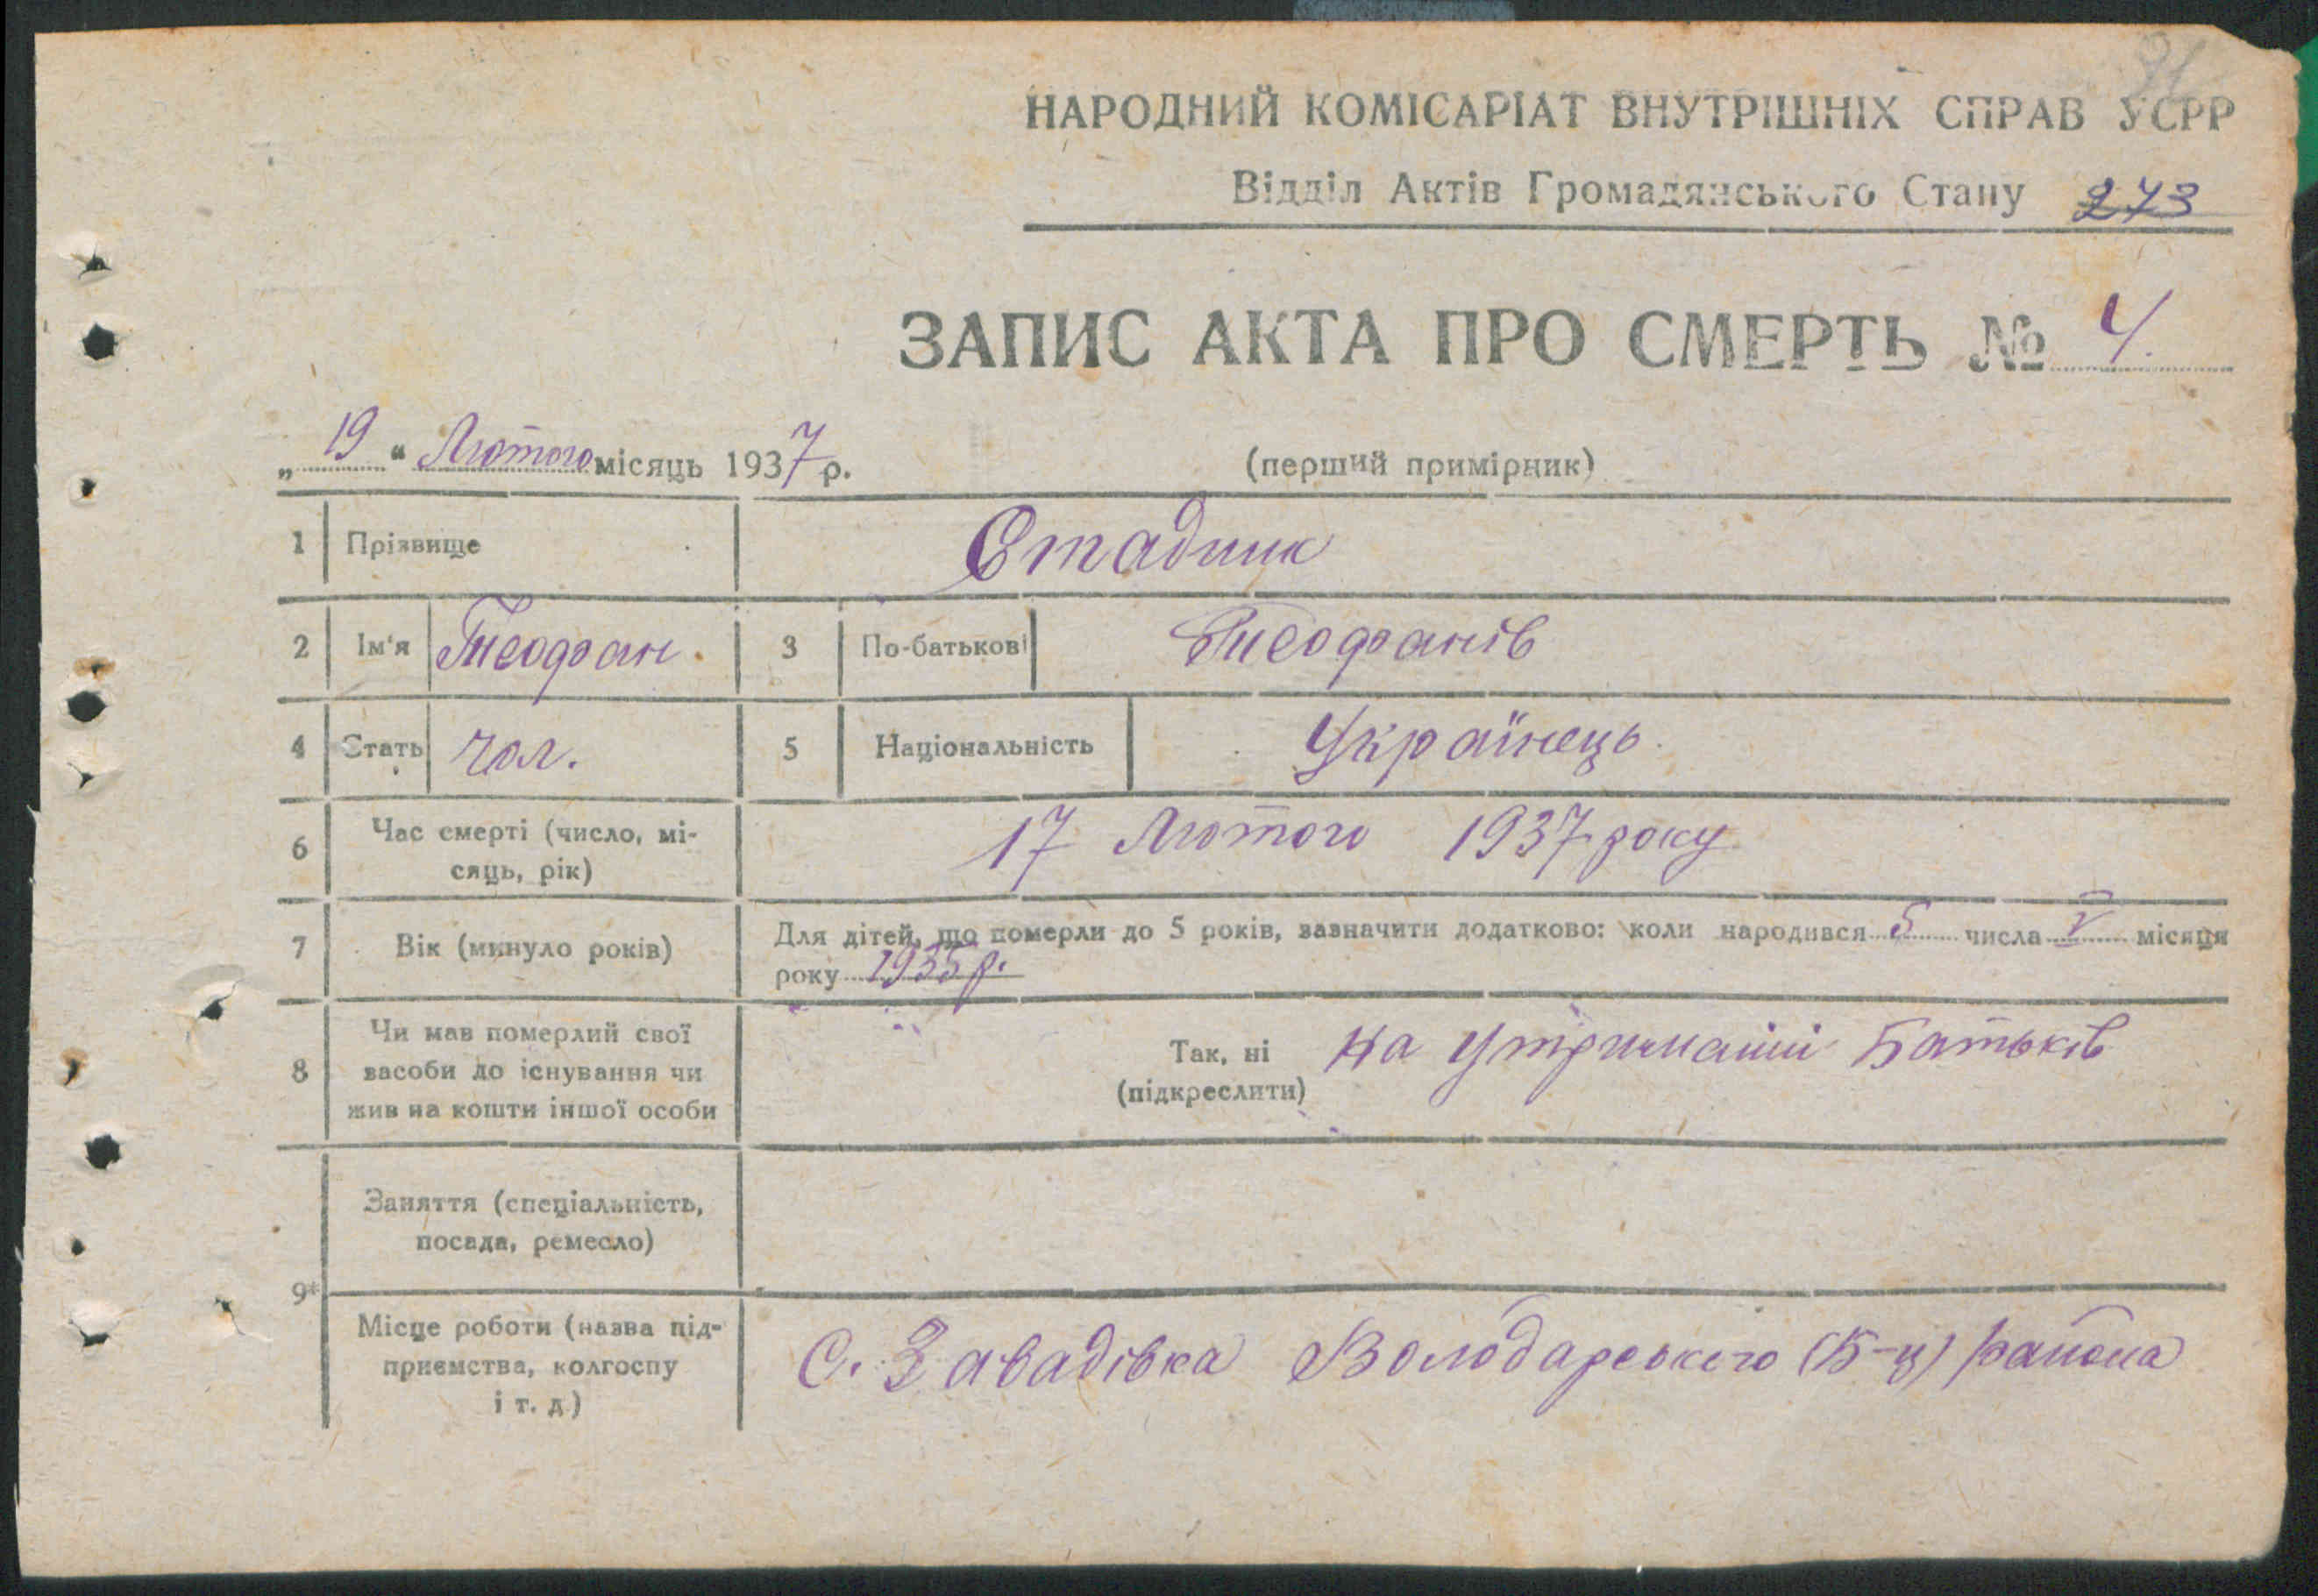 91
НАРОДНИЙ КОМІСАРІАТ ВНУТРІШНІХ СПРАВ УСРР
Відділ Актів Громадянського Стану 273
ЗАПИС АКТА ПРО СМЕРТЬ № 4.
„19“ Лютого місяць 1937 р. (перший примірник)
1 Прізвище Стадник
2 Ім'я Теофан. 3 По-батькові Теофанів
4 Стать чол. 5 Національність Українець
6 Час смерті (число, мі-
сяць, рік) 17 Лютого 1937 року
7 Вік (минуло років) Для дітей, що померли до 5 років, зазначити додатково: коли народився 5 числа V місяця
року 1935 р.
8 Чи мав померлий свої
засоби до існування чи
жив на кошти іншої особи
Так, ні
(підкреслити) на утриманні Батьків
9* Заняття (спеціальність,
посада, ремесло)
Місце роботи (назва під-
приємства, колгоспу
і т. д.) С. Завадівка Володарського (Б-ц) района